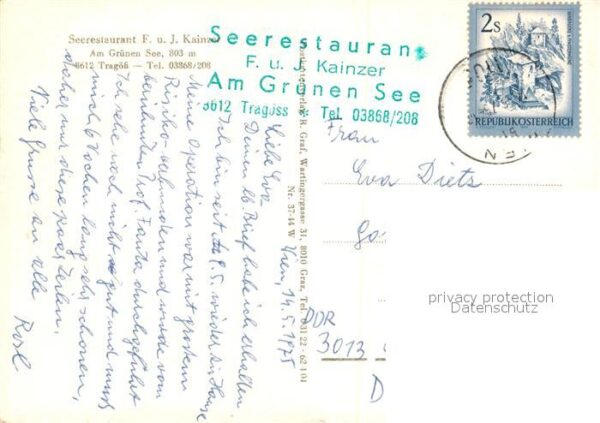 Seerestaurant F. u. J. Kainzer
Am Grünen See, 803 m
8612 Tragöß — Tel. 03868/208
Seerestaurant
F. u. J. Kainzer
Am Grünen See
8612 Tragöss * Tel. 03868/208
2s
REPUBLIK ÖSTERREICH
WIEN
R. Graf, Wartingergasse 31, 8010 Graz, Tel. 03122 - 62401
Nr. 37-44 W
Wien, 14.5.1975
Liebe Eva
Deinen lb. Brief habe ich erhalten
Ich bin seit d. 9.5. wieder in Hause
Meine Operation war mit grossem
Risiko verbunden und wurde vom
berühmten Prof. Fanta durchgeführt
Ich sehe noch nicht so gut und muß
mich 6 Wochen lang sehr schonen,
daher nur diese paar Zeilen.
Viele Grüsse an alle
Rosl
Frau
Eva Diets
DDR
3013
D
privacy protection
Datenschutz